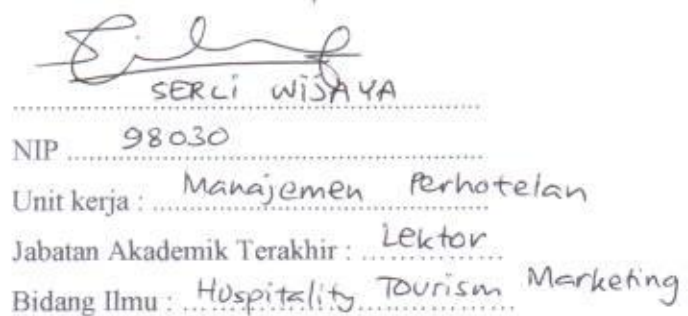 SERLI WIJAYA
NIP 98030
Unit kerja : Manajemen Perhotelan
Jabatan Akademik Terakhir : Lektor
Bidang Ilmu : Hospitality Tourism Marketing